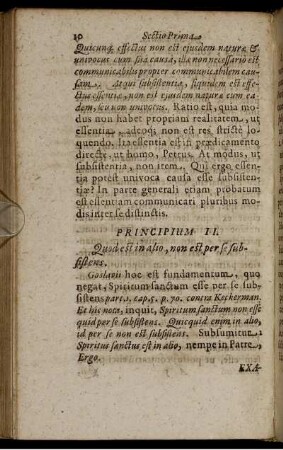 30 Sectio Prima
Quicunq; effectus non est ejusdem naturæ &
univocus cum sua causa, illa non necessario est
communicabilis propter communicabilem cau-
sam. Atqui subsistentia, siquidem est effe-
ctus essentiæ, non est ejusdem naturæ cum ea-
dem, seu non univocus. Ratio est, quia mo-
dus non habet propriam realitatem, ut
essentia, adeoq; non est res strictè lo-
quendo. Ita essentia est in prædicamento
directè, ut homo, Petrus. At modus, ut
subsistentia, non item. Qui ergo essen-
tia potest univoca causa esse subsisten-
tiæ? In parte generali etiam probatum
est essentiam communicari pluribus mo-
dis inter se distinctis.
PRINCIPIUM II.
Quod est in alio, non est per se sub-
sistens.
Goslavii hoc est fundamentum, quo
negat, Spiritum sanctum esse per se sub-
sistens part. 1. cap. 5. p. 70. contra Kecherman.
Et hic nota, inquit, Spiritum sanctum non esse
quid per se subsistens. Quicquid enim in alio,
id per se non est subsistens. Subsumitur:
Spiritus sanctus est in alio, nempe in Patre,
Ergo.
EXA-